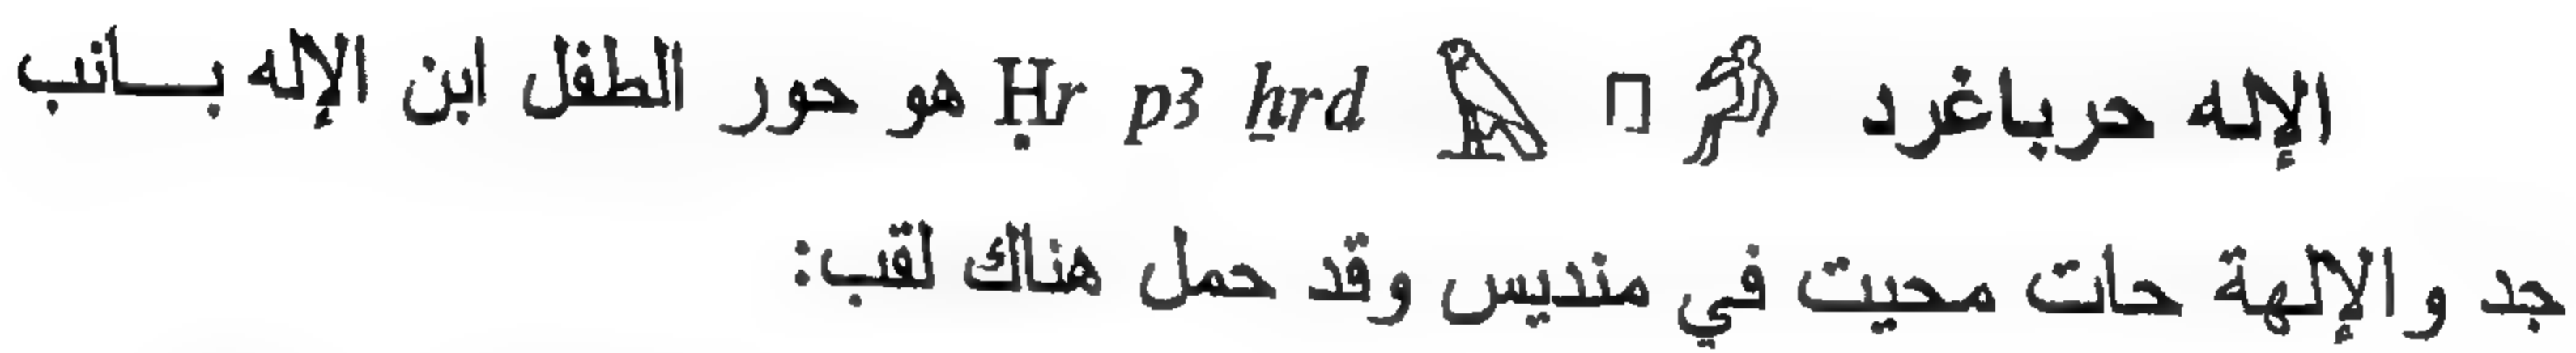 الإله حرباغرد 𓀔 𓊪 𓅃 Ḥr p3 ẖrd هو حور الطفل ابن الإله بـــانب
جد والإلهة حات محيت في منديس وقد حمل هناك لقب: